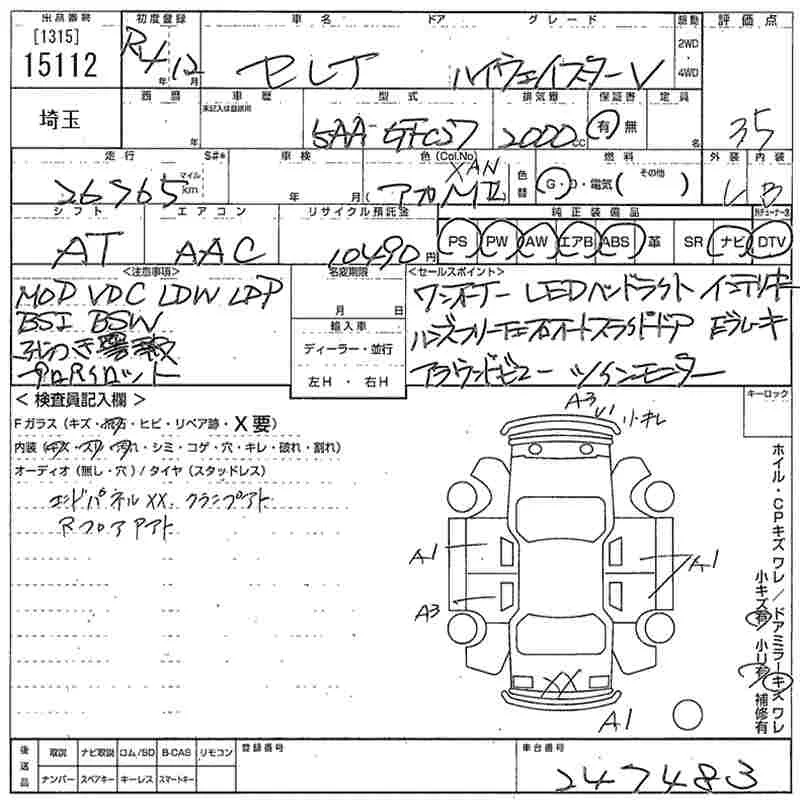 出品番号 初度登録 車名 ドア グレード 駆動 評価点
[1315]
15112 R4年12月 セレナ ハイウェイスターV 2WD・4WD
埼玉 西暦 年 車歴 未記入は自家用 型式 5AA-GFC27 排気量 2000cc 保証書 有 無 定員 名 3.5
走行 26765 マイル km S#* 車検 年 月 色(Col.No) アカM XAN 色替 燃料 G・D・電気( その他 ) 外装 内装 B
シフト AT エアコン AAC リサイクル預託金 10490円 純正装備品 PS PW AW エアB ABS 革 SR ナビ DTV
<注意事項> 名変期限 <セールスポイント>
MOD VDC LDW LDP 月 日 ワンオーナー LEDヘッドライト インテリキー
BSI BSW 輸入車 ハンズフリー両オートスライドドア Eブレーキ
プロパイロット ディーラー・並行 アラウンドビュー ツインモニター
左H ・ 右H
<検査員記入欄> キーロック
Fガラス(キズ・飛石・ヒビ・リペア跡・X要)
内装(キズ・スリ・汚れ・シミ・コゲ・穴・キレ・破れ・割れ)
オーディオ(無し・穴)/タイヤ(スタッドレス)
エンドパネルXX、クランプアト
Rフロアアアト
A3 小キレ
A1 A1
A3
XX
A1
ホイル・CPキズワレ/ドアミラーキズワレ
小キズ有 小リ有 補修有
後送品 取説 ナビ取説 ロム/SD B-CAS リモコン 登録番号 車台番号
ナンバー スペアキー キーレス スマートキー 247483